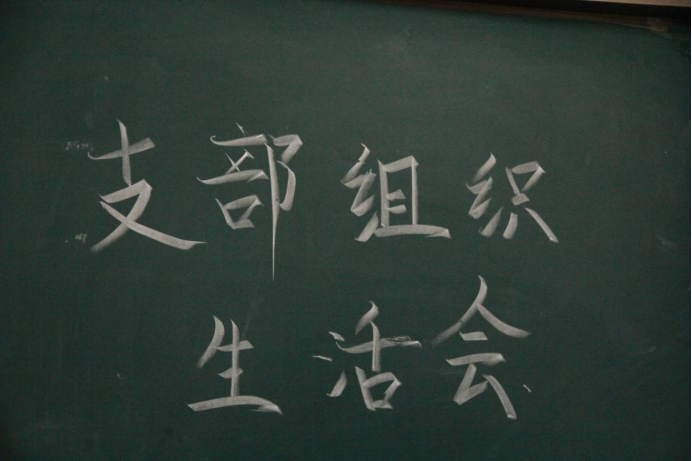 支部组织
生活会